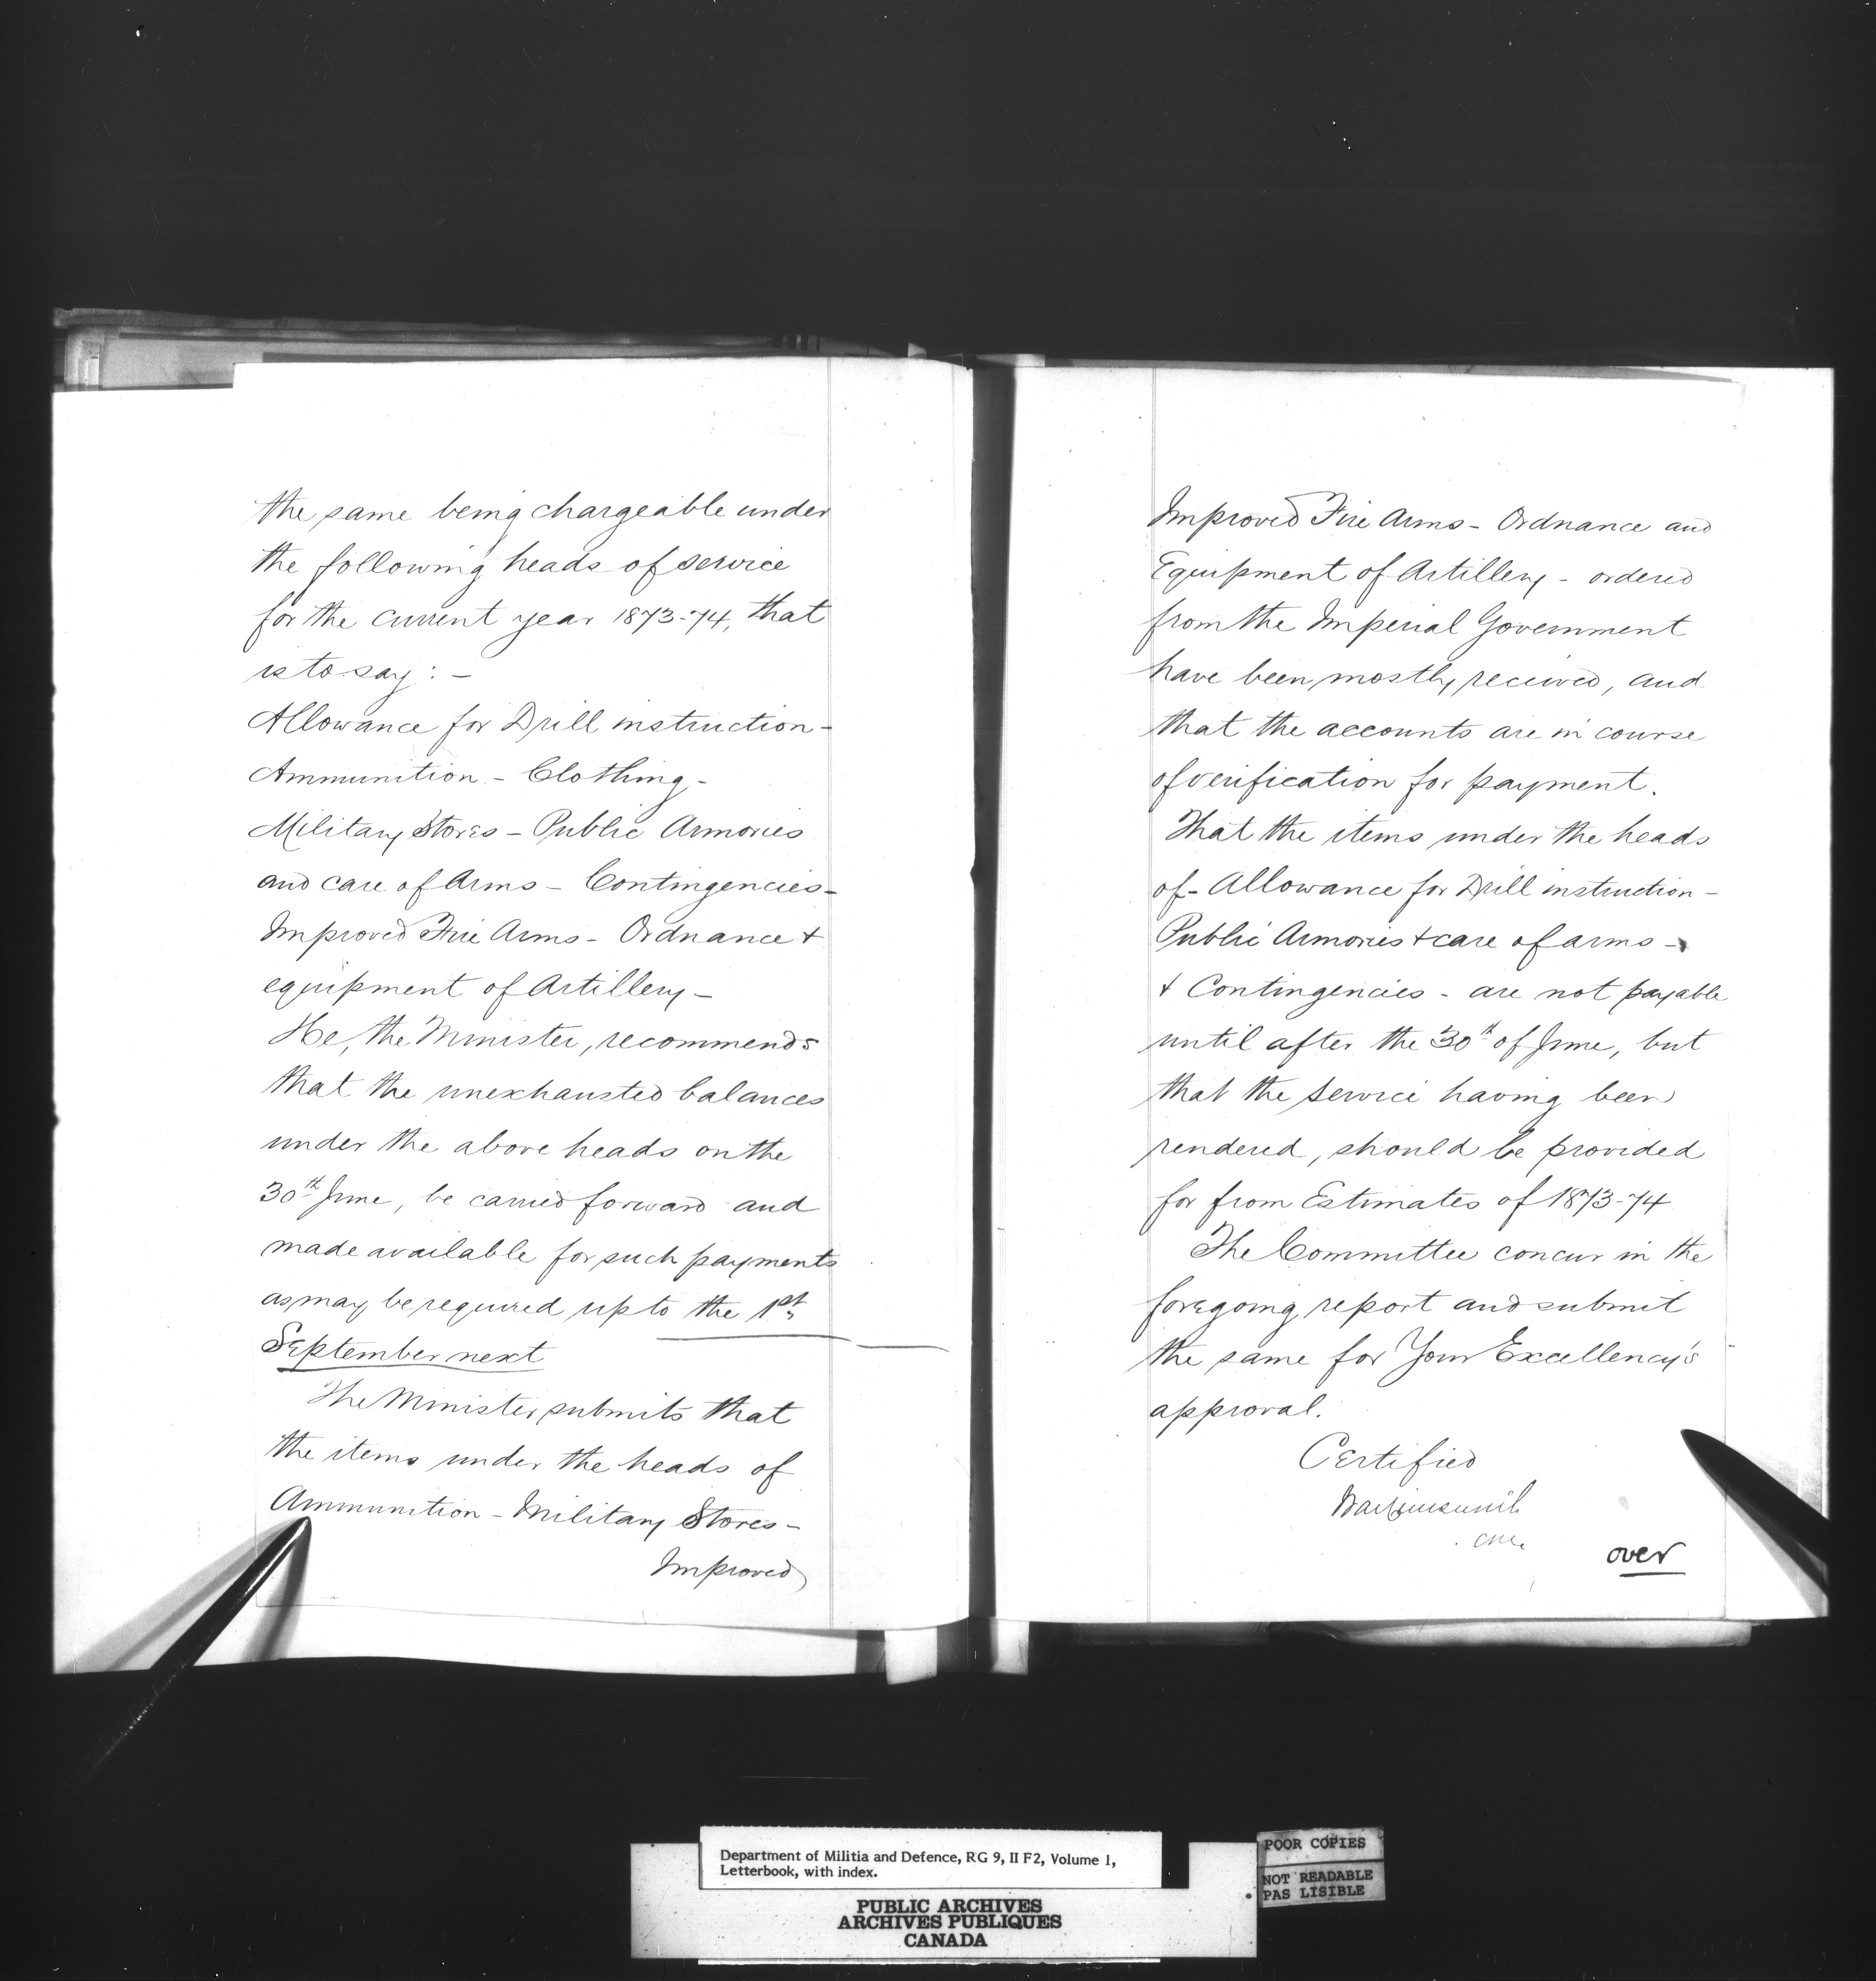 the same being chargeable under
the following heads of service
for the current year 1873-74, that
is to say : -
Allowance for Drill instruction -
Ammunition - Clothing -
Military Stores - Public Armories
and care of Arms - Contingencies -
Improved Fire Arms - Ordnance +
equipment of Artillery -
He, the Minister, recommends
that the unexhausted balances
under the above heads on the
30th June, be carried forward and
made available for such payments
as may be required up to the 1st
September next
The Minister submits that
the items under the heads of
Ammunition - Military Stores -
Improved
Improved Fire Arms - Ordnance and
Equipment of Artillery - ordered
from the Imperial Government
have been mostly received, and
that the accounts are in course
of verification for payment.
That the items under the heads
of - Allowance for Drill instruction -
Public Armories + care of arms -
+ Contingencies - are not payable
until after the 30th of June, but
that the service having been
rendered, should be provided
for from Estimates of 1873-74
The Committee concur in the
foregoing report and submit
the same for Your Excellency's
approval.
Certified
over
Department of Militia and Defence, RG 9, II F2, Volume 1,
Letterbook, with index.
PUBLIC ARCHIVES
ARCHIVES PUBLIQUES
CANADA
POOR COPIES
NOT READABLE
PAS LISIBLE